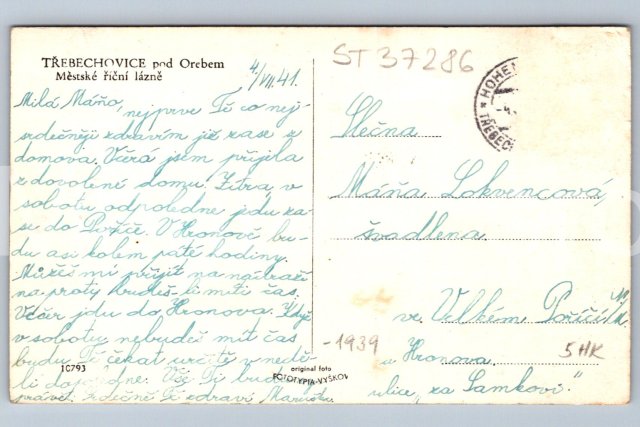 TŘEBECHOVICE pod Orebem
Městské říční lázně
4/VII.41.
Milá Máňo,
nejprve Tě co nej-
srdečněji zdravím již zase z
domova. Včera jsem přijela
z dovolené domů. Zítra v
sobotu odpoledne jedu za-
se do Poříče. V Hronově bu-
du asi kolem páté hodiny.
Můžeš mi přijít na nádraží
na proti budeš-li míti čas.
Večer jdu do Hronova. Když
v sobotu nebudeš mít čas
budu Ti čekat určitě v nedě-
li dopoledne. Vše Ti budu
Srdečně Tě zdraví
1C793
original foto
FOTOTYPIA-VYŠKOV
ST 37286
HOHEN
TŘEBECH
Slečna
Máňa Lokvencová,
švadlena
ve Velkém Poříčí
-1939
u Hronova.
5HK
ulice „za Samkovi"